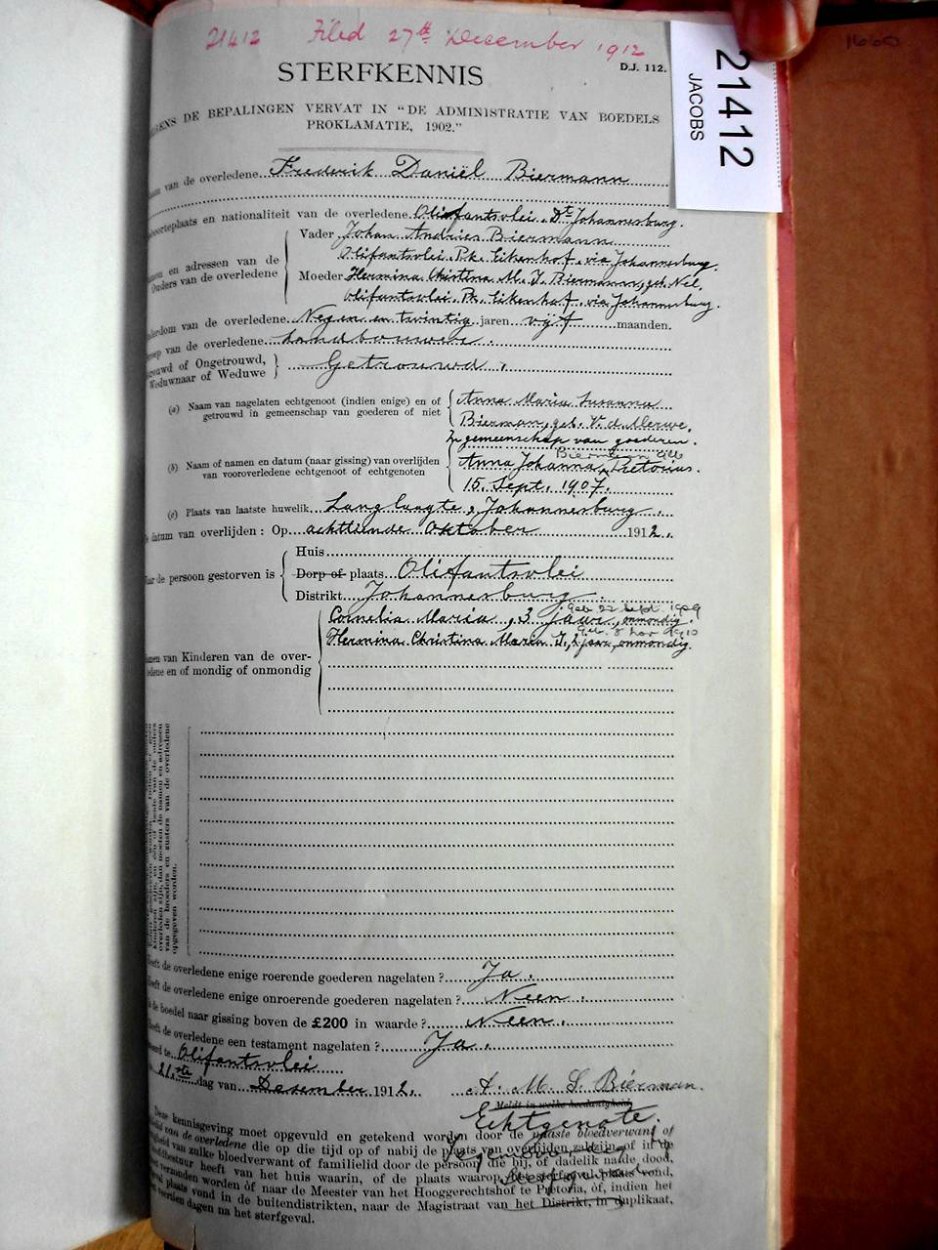 21412 Filed 27th December 1912
D.J. 112.
21412
JACOBS
STERFKENNIS
DE BEPALINGEN VERVAT IN "DE ADMINISTRATIE VAN BOEDELS
PROKLAMATIE, 1902."
van de overledene Frederik Daniël Biermann
en nationaliteit van de overledene. Olifantsvlei. Dt. Johannesburg.
en adressen van de
Ouders van de overledene
Vader Johan Andries Biermann
Olifantsvlei. P.k. Eikenhof. via Johannesburg.
Moeder Hermina Christina M. J. Biermann, geb. Nel,
Olifantsvlei. Pk. Eikenhof. via Johannesburg.
van de overledene Negen en twintig jaren vijf maanden.
van de overledene Landbouwer.
of Ongetrouwd,
Weduwnaar of Weduwe } Getrouwd.
(a) Naam van nagelaten echtgenoot (indien enige) en of
getrouwd in gemeenschap van goederen of niet
Anna Maria Susanna
Bierman, geb. V. d. Merwe,
In gemeenschap van goederen.
(b) Naam of namen en datum (naar gissing) van overlijden
van vooroverledene echtgenoot of echtgenoten
Anna Johanna Pretorius.
15. Sept. 1907.
(c) Plaats van laatste huwelik. Langlaagte, Johannesburg.
datum van overlijden : Op achttiende Oktober 1912.
de persoon gestorven is
Huis
Dorp of plaats Olifantsvlei
Distrikt Johannesburg.
Geb. 22 Sept. 1909
Cornelia Maria, 3 jaar, onmondig.
1910
Hermina Christina Maria J, 2 jaar, onmondig.
van Kinderen van de over-
ledene en of mondig of onmondig
van de broeders en zusters van de overledene
opgegeven worden.
de overledene enige roerende goederen nagelaten ? Ja.
de overledene enige onroerende goederen nagelaten ? Neen.
de boedel naar gissing boven de £200 in waarde ? Neen.
de overledene een testament nagelaten ? Ja.
te Olifantsvlei
21ste dag van Desember 1912. A. M. S. Bierman.
Meldt in welke hoedanigheid
Echtgenote.
Deze kennisgeving moet opgevuld en getekend worden door de naaste bloedverwant of
van de overledene die op die tijd op of nabij de plaats van overlijden zal zijn, of in de
van zulke bloedverwant of familielid door de persoon die bij, of dadelik na de dood,
heeft van het huis waarin, of de plaats waarop het sterfgeval plaats vond,
worden òf naar de Meester van het Hooggerechtshof te Pretoria, òf, indien het
plaats vond in de buitendistrikten, naar de Magistraat van het Distrikt, in duplikaat,
dagen na het sterfgeval.